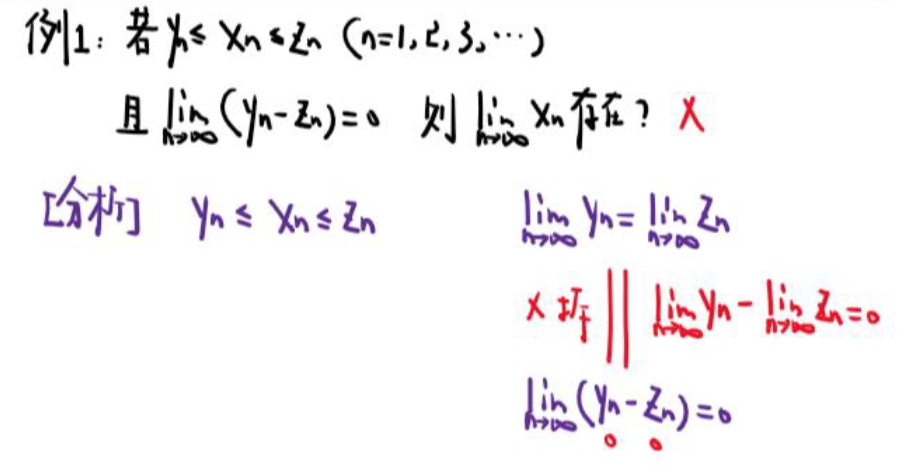 例1：若 yₙ ≤ xₙ ≤ zₙ (n=1, 2, 3, ⋯)
且 lim n→∞ (yₙ - zₙ) = 0 则 lim n→∞ xₙ 存在？ ×
[分析] yₙ ≤ xₙ ≤ zₙ lim n→∞ yₙ = lim n→∞ zₙ
× 拆 || lim n→∞ yₙ - lim n→∞ zₙ = 0
lim n→∞ (yₙ - zₙ) = 0